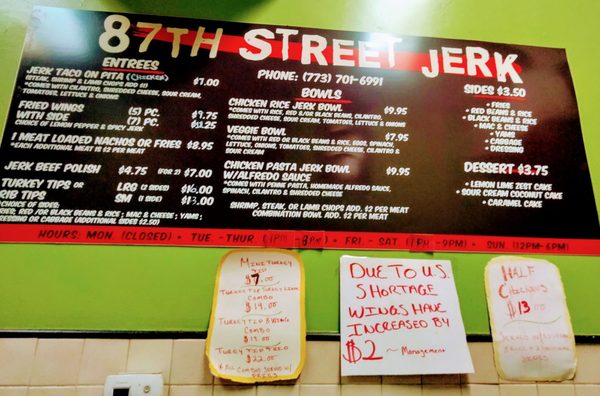 87TH STREET JERK
PHONE: (773) 701-6991
ENTREES
JERK TACO ON PITA (CHICKEN) $7.00
(STEAK, SHRIMP & LAMB CHOPS ADD $2)
*COMES WITH CILANTRO, SHREDDED CHEESE, SOUR CREAM,
TOMATOES, LETTUCE & ONIONS
FRIED WINGS (5) PC. $9.75
WITH SIDE (7) PC. $12.25
CHOICE OF LEMON PEPPER & SPICY JERK
1 MEAT LOADED NACHOS OR FRIES $8.95
*EACH ADDITIONAL MEAT IS $2 PER MEAT
JERK BEEF POLISH $4.75 (FOR 2) $7.00
TURKEY TIPS OR LRG (2 SIDES) $16.00
RIB TIPS SM (1 SIDE) $13.00
CHOICE OF SIDES:
FRIES; RED /OR BLACK BEANS & RICE ; MAC & CHEESE ; YAMS ;
DRESSING OR CABBAGE (ADDITIONAL SIDES $2.50)
BOWLS
CHICKEN RICE JERK BOWL $9.95
*COMES WITH RICE, RED &/OR BLACK BEANS, CILANTRO,
SHREDDED CHEESE, SOUR CREAM, TOMATOES, LETTUCE & ONIONS
VEGGIE BOWL $7.95
*COMES WITH RED OR BLACK BEANS & RICE, EGGS, SPINACH,
LETTUCE, ONIONS, TOMATOES, SHREDDED CHEESE, CILANTRO &
SOUR CREAM
CHICKEN PASTA JERK BOWL $9.95
W/ALFREDO SAUCE
*COMES WITH PENNE PASTA, HOMEMADE ALFREDO SAUCE,
SPINACH, CILANTRO & SHREDDED CHEESE
SHRIMP, STEAK, OR LAMB CHOPS ADD. $2 PER MEAT
COMBINATION BOWL ADD. $2 PER MEAT
SIDES $3.50
• FRIES
• RED BEANS & RICE
• BLACK BEANS & RICE
• MAC & CHEESE
• YAMS
• CABBAGE
• DRESSING
DESSERT $3.75
• LEMON LIME ZEST CAKE
• SOUR CREAM COCONUT CAKE
• CARAMEL CAKE
HOURS: MON. (CLOSED) • TUE. -THUR. (1PM-8PM) • FRI.- SAT. (1PM -9PM) • SUN. (12PM-6PM)
MINI TURKEY
$7.00
COMBO
$14.00
TURKEY TIP & WING
COMBO
TURKEY TIP
COMBO
$22.00
DUE TO U.S.
SHORTAGE
WINGS HAVE
INCREASED BY
$2 ~Management
HALF
CHICKENS
$13.00